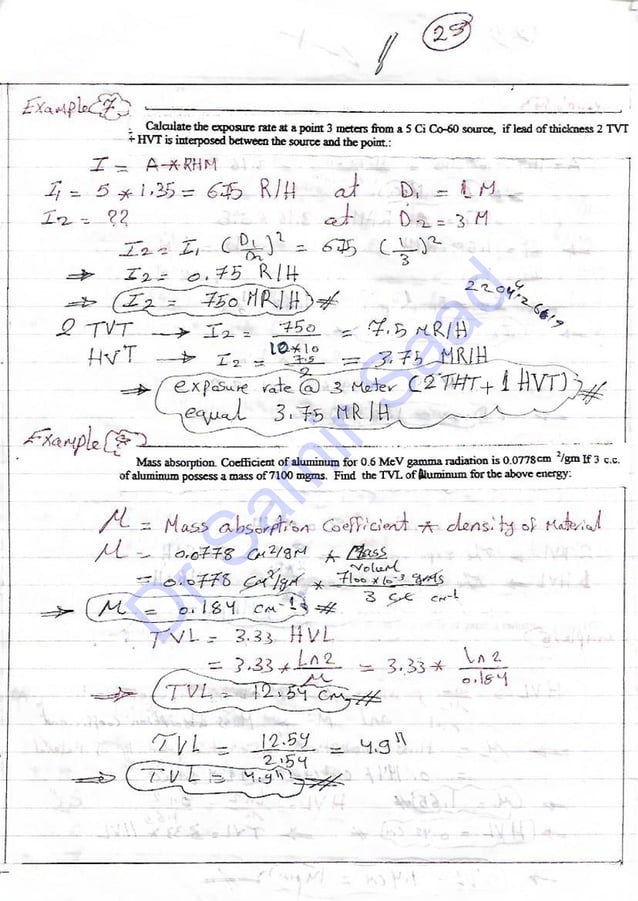 23
Example 7
Calculate the exposure rate at a point 3 meters from a 5 Ci Co-60 source, if lead of thickness 2 TVT
+ HVT is interposed between the source and the point.:
I = A * RHM
I1 = 5 * 1.35 = 675 R/H at D1 = 1 M
I2 = ?? at D2 = 3 M
I2 = I1 (D1/D2)² = 675 (1/3)²
⇒ I2 = 0.75 R/H
⇒ I2 = 750 MR/H #
2 TVT → I2 = 750 / 10*10 = 7.5 MR/H
HVT → I2 = 7.5 / 2 = 3.75 MR/H
⇒ exposure rate @ 3 Meter (2THT + 1 HVT) #
equal 3.75 MR/H
Example
Mass absorption. Coefficient of aluminum for 0.6 MeV gamma radiation is 0.0778cm ²/gm If 3 c.c.
of aluminum possess a mass of 7100 mgms. Find the TVL of Aluminum for the above energy:
M = Mass absorption Coefficient * density of Material
M = 0.0778 cm²/gm * Mass / volum
= 0.0778 cm²/gm * 7100 x 10⁻³ gms / 3
⇒ M = 0.184 cm⁻¹ #
TVL = 3.33 HVL
= 3.33 * Ln2 / M = 3.33 * Ln2 / 0.184
⇒ TVL = 12.54 cm #
TVL = 12.54 / 2.54 = 4.9"
⇒ TVL = 4.9" #
Dr Samir Saad